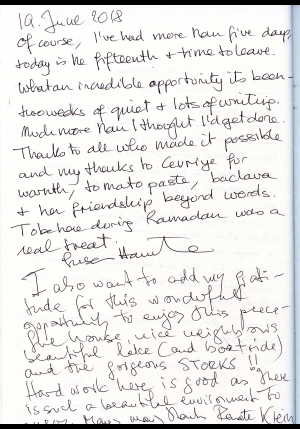 19. June 2018
Of course, I've had more than five days,
today is the fifteenth + time to leave.
What an incredible opportunity its been -
two weeks of quiet + lots of writing.
Much more than I thought I'd get done.
Thanks to all who made it possible
and my thanks to Cevriye for
warmth, tomato paste, baclava
+ her friendship beyond words.
To be here during Ramadan was a
real treat.
Susan Hawthorne
I also want to add my grati-
tude for this wonderful
opportunity to enjoy this peace-
ful house, nice neighbours
beautiful lake (and boat ride)
and the gorgeous STORKS!
Hard work here is good as there
is such a beautiful environment to
Many many thanks Renate Klein